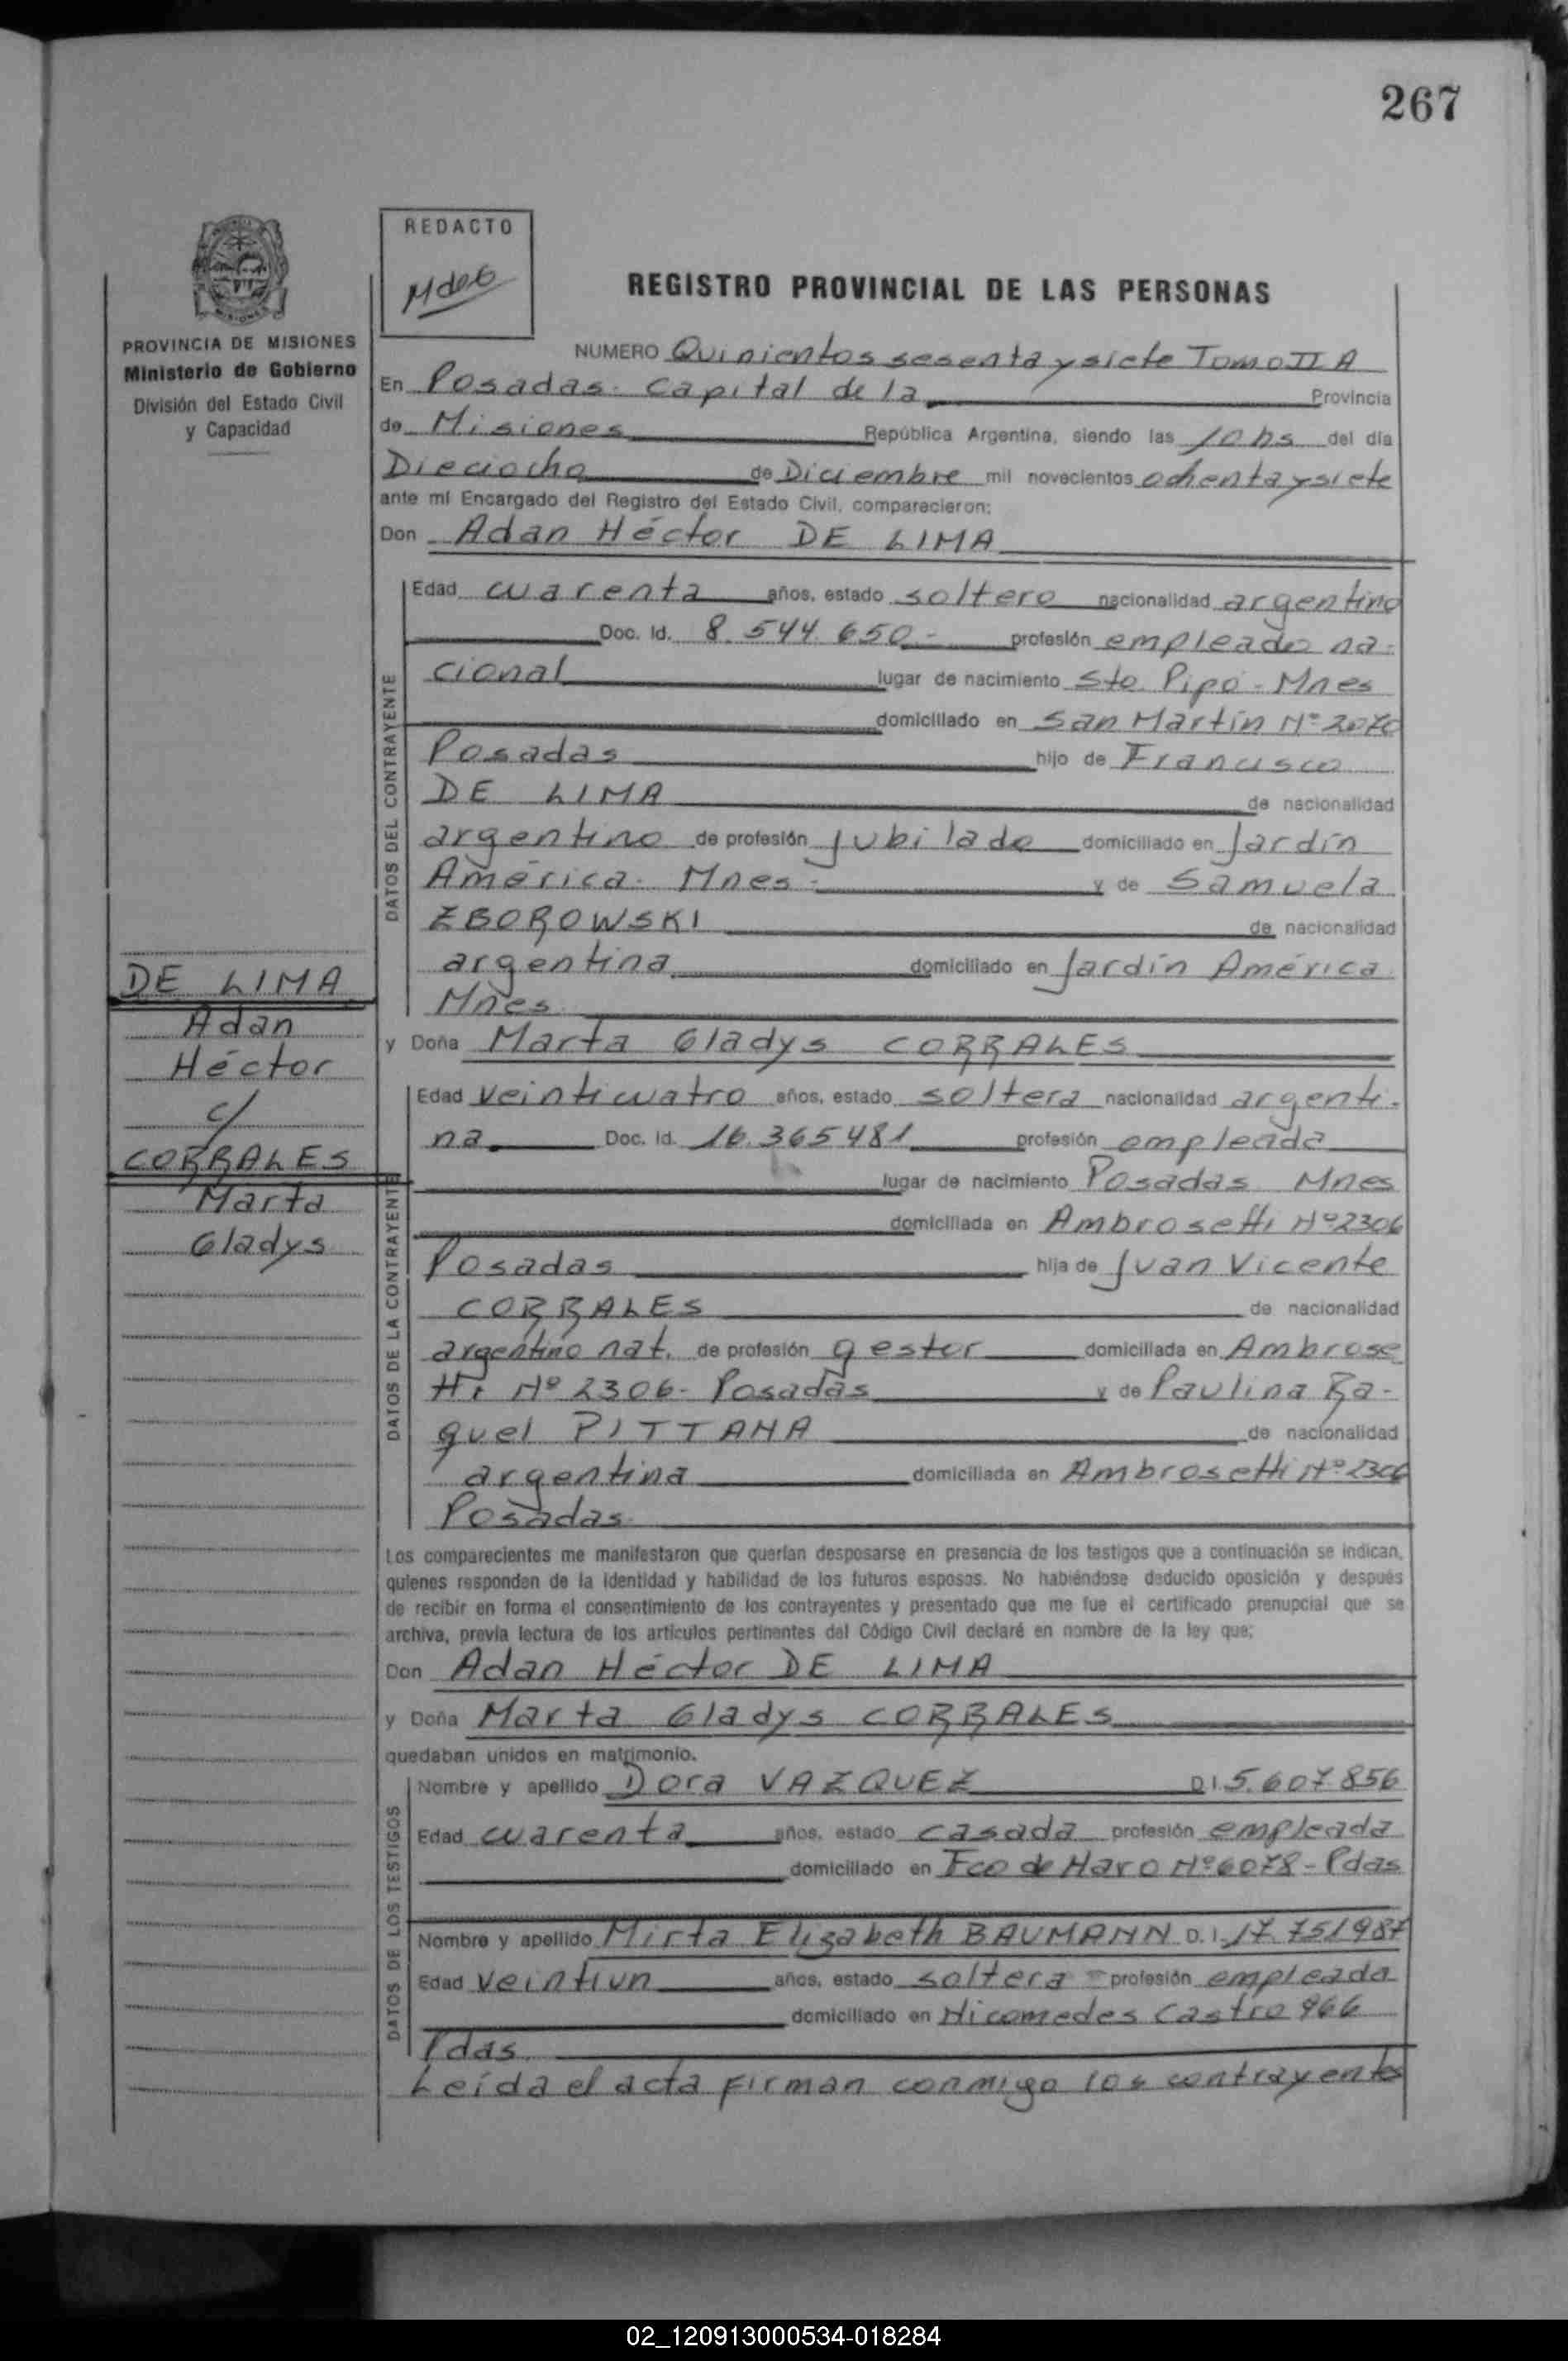 267
REDACTO
REGISTRO PROVINCIAL DE LAS PERSONAS
PROVINCIA DE MISIONES
Ministerio de Gobierno
División del Estado Civil
y Capacidad
NUMERO Quinientos sesenta y siete Tomo II A
En Posadas. Capital de la Provincia
de Misiones República Argentina, siendo las 10 hs del día
Dieciocho de Diciembre mil novecientos ochenta y siete
ante mí Encargado del Registro del Estado Civil, comparecieron:
Don Adan Héctor DE LIMA
DATOS DEL CONTRAYENTE
Edad cuarenta años, estado soltero nacionalidad argentino
Doc. Id. 8.544.650.- profesión empleado na-
cional lugar de nacimiento Sto. Pipó - Mnes
domiciliado en San Martín Nº 2070
Posadas hijo de Francisco
DE LIMA de nacionalidad
argentino de profesión jubilado domiciliado en Jardín
América. Mnes.- y de Samuela
ZBOROWSKI de nacionalidad
argentina domiciliado en Jardín América
Mnes.
DE LIMA
Adan
Héctor
c/
CORRALES
Marta
Gladys
y Doña Marta Gladys CORRALES
DATOS DE LA CONTRAYENTE
Edad veinticuatro años, estado soltera nacionalidad argenti-
na Doc. Id. 16.365.481 profesión empleada
lugar de nacimiento Posadas Mnes
domiciliada en Ambrosetti Nº 2306
Posadas hija de Juan Vicente
CORRALES de nacionalidad
argentino nat. de profesión gestor domiciliada en Ambrose
tti Nº 2306- Posadas y de Paulina Ra-
quel PITTANA de nacionalidad
argentina domiciliada en Ambrosetti Nº 2306
Posadas
Los comparecientes me manifestaron que querían desposarse en presencia de los testigos que a continuación se indican,
quienes responden de la identidad y habilidad de los futuros esposos. No habiéndose deducido oposición y después
de recibir en forma el consentimiento de los contrayentes y presentado que me fue el certificado prenupcial que se
archiva, previa lectura de los artículos pertinentes del Código Civil declaré en nombre de la ley que;
Don Adan Héctor DE LIMA
y Doña Marta Gladys CORRALES
quedaban unidos en matrimonio.
DATOS DE LOS TESTIGOS
Nombre y apellido Dora VAZQUEZ D.I. 5.607.856
Edad cuarenta años, estado casada profesión empleada
domiciliado en Fco de Haro Nº 6078 - Pdas
Nombre y apellido Mirta Elizabeth BAUMANN D.I. 17.751987
Edad veintiun años, estado soltera profesión empleada
domiciliado en Nicomedes Castro 966
Pdas.
Leída el acta firman conmigo los contrayentes
02_120913000534-018284